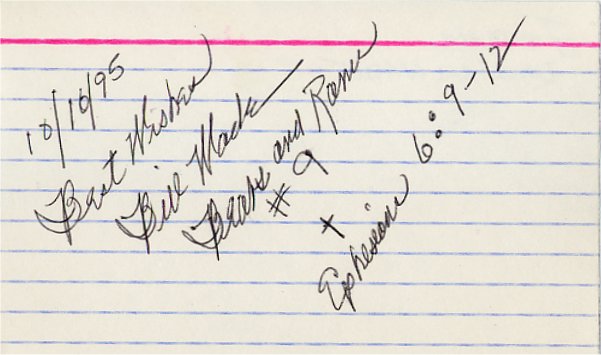 Best Wishes
Bill Wade
Bears and Rams
# 9
+
Ephesians 6:9-12